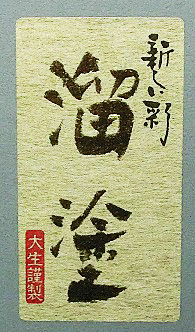 新しい彩
溜塗
大生謹製